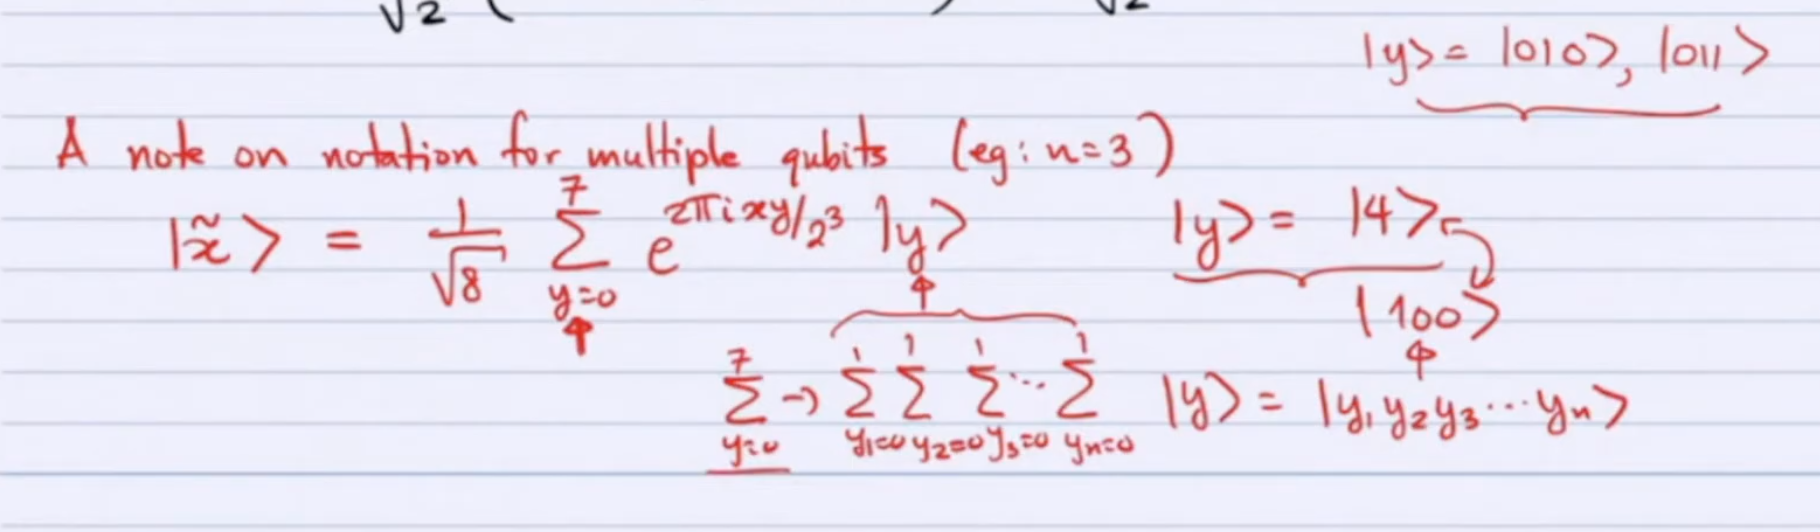 √2 ( ) √2
|y⟩ = |010⟩, |011⟩
A note on notation for multiple qubits (eg: n=3)
|x̃⟩ = 1/√8 ∑_{y=0}^{7} e^{2πixy/2³} |y⟩ |y⟩ = |4⟩
|100⟩
∑_{y=0}^{7} → ∑_{y₁=0}^{1} ∑_{y₂=0}^{1} ∑_{y₃=0}^{1} ... ∑_{yₙ=0}^{1} |y⟩ = |y₁y₂y₃...yₙ⟩